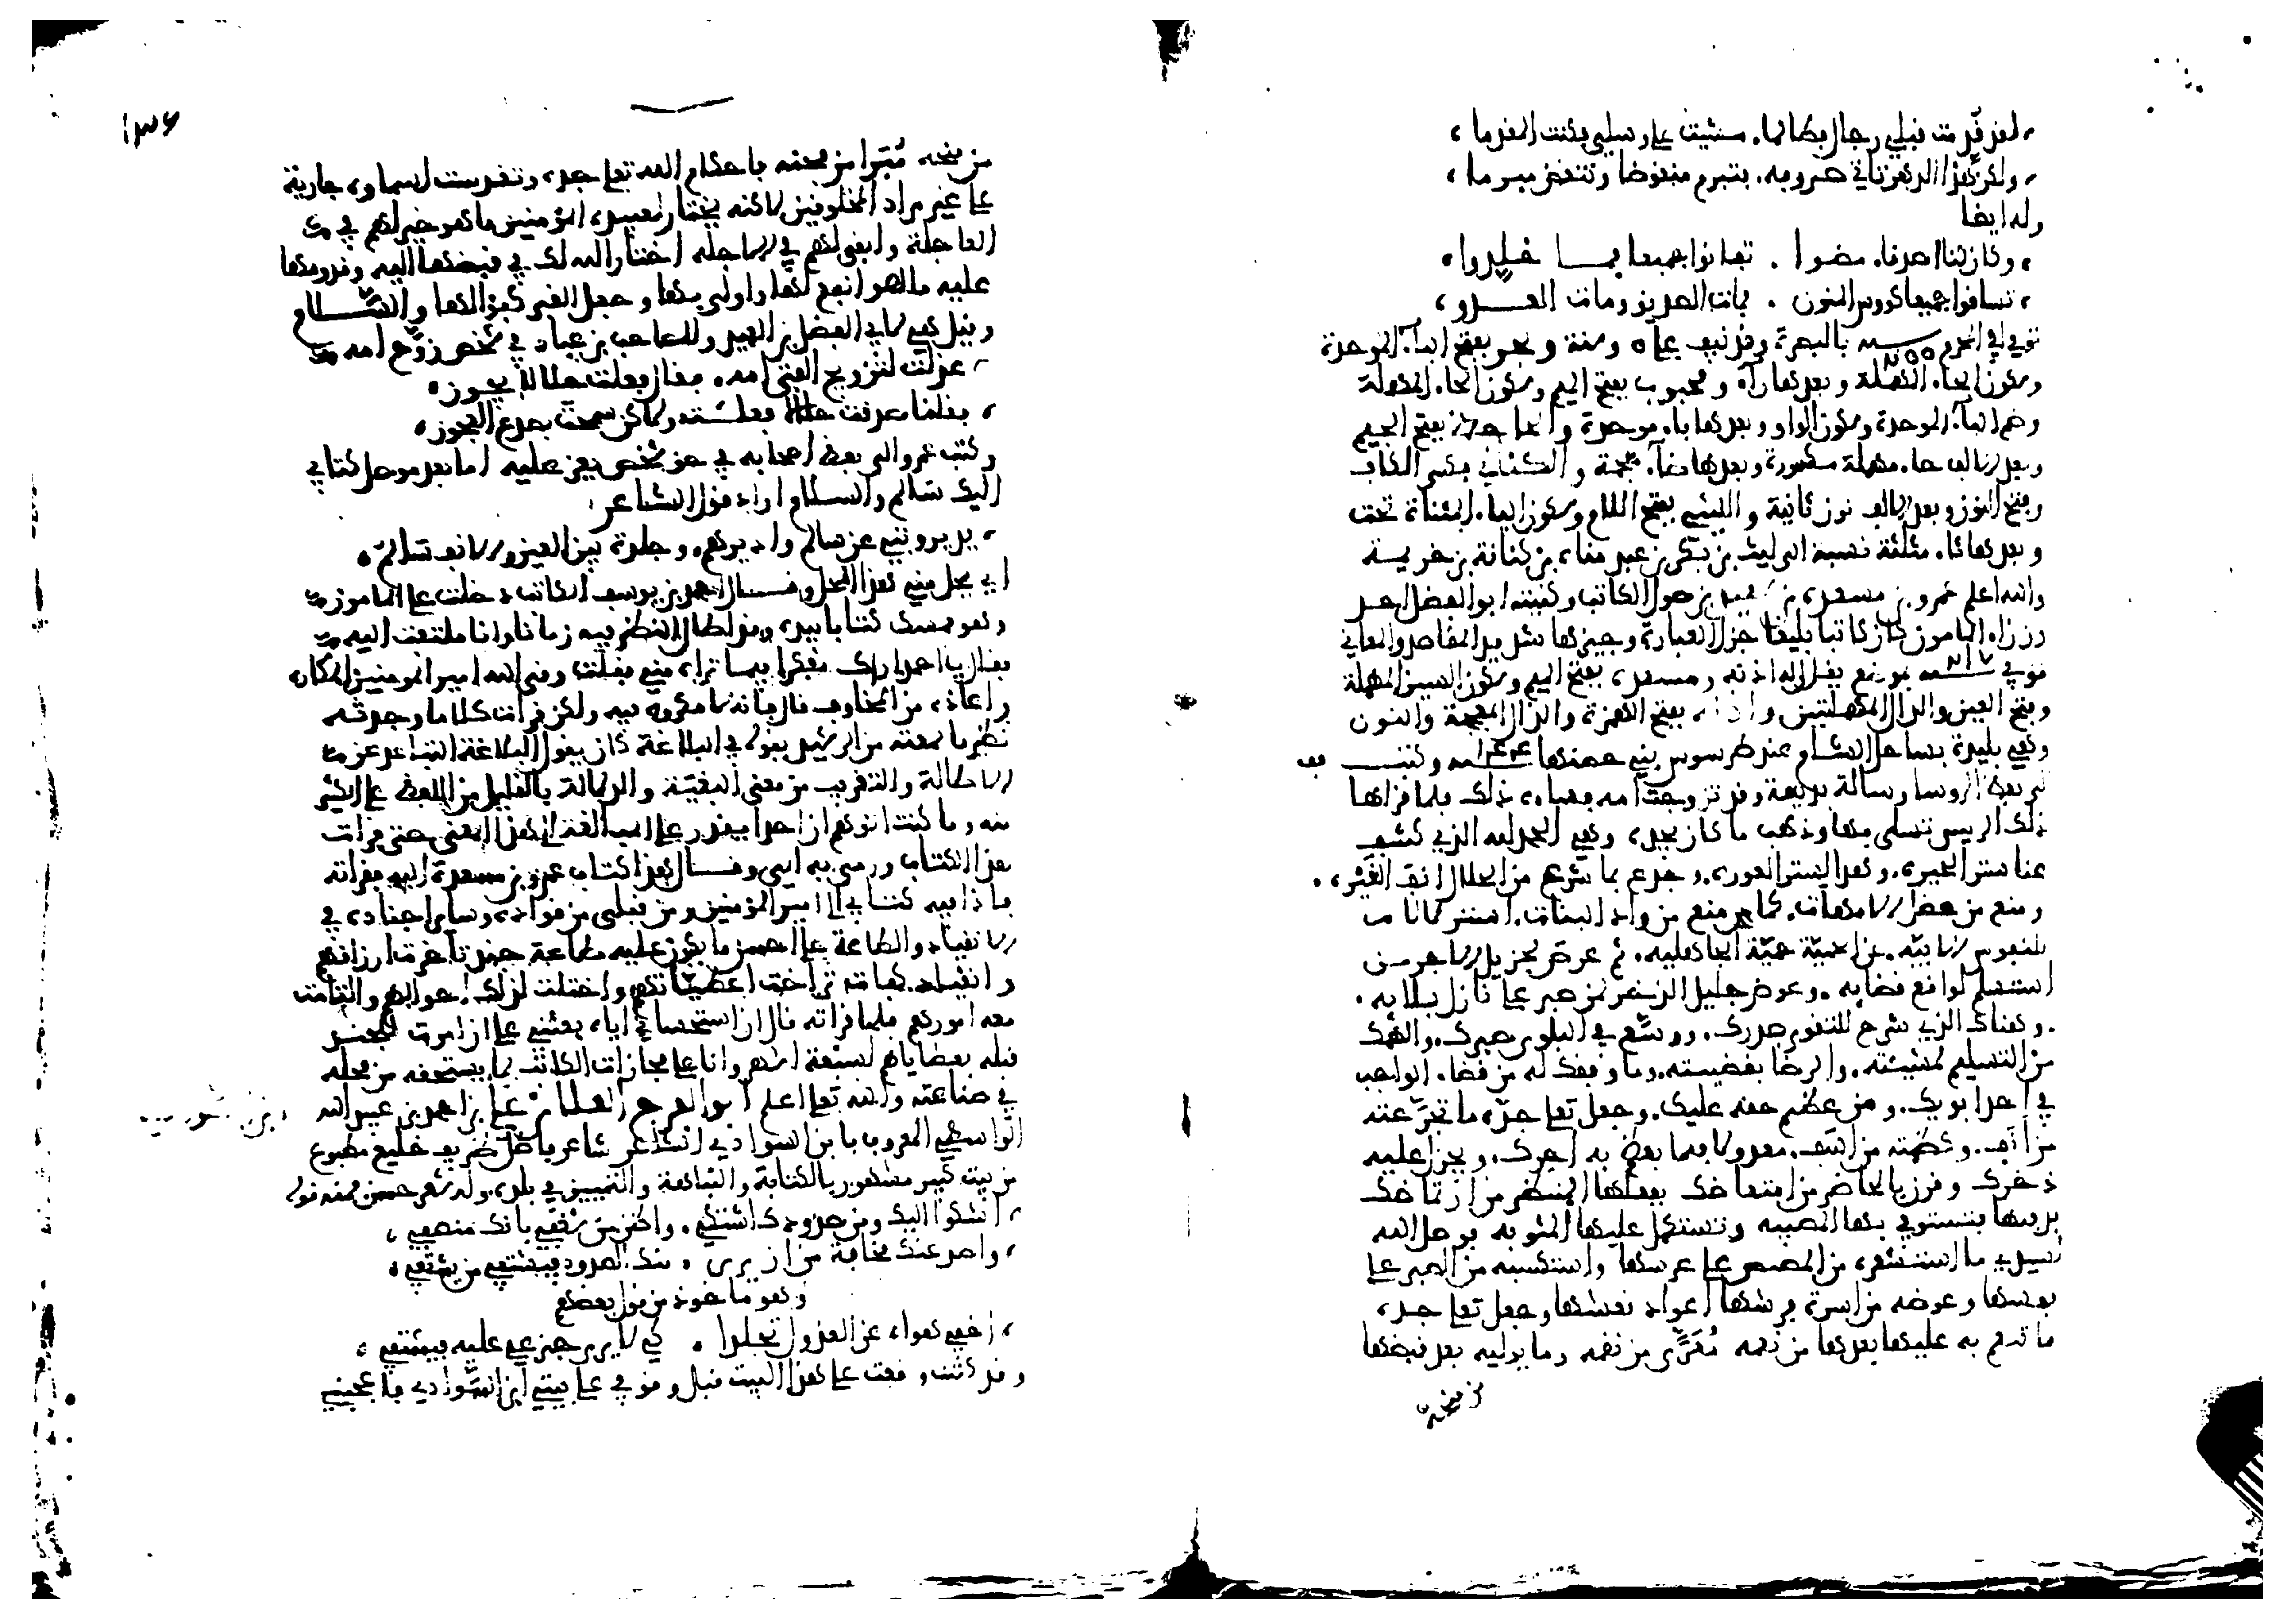 لقد قدمت قبلي رجال بطالما. مشيت على رسلي فكنت المقدما
ولكن هذا الدهر تاتي صروفه. بتبرم منقوضا وتنقض مبرما
وله ايضا
وكان لنا اصدقا. مضوا . تفانوا جميعا فما خلدوا
تساقوا جميعا كروس المنون . فمات الصديق ومات العدو
توفي في المحرم سنه ٢٥٥ بالبصرة وقد نيف على ٩٠ سنة وبحر بفتح البا. الموحدة
وسكون الحا. المهملة وبعدها را. ومحبوب بفتح الميم وسكون الحا. المهملة
وضم البا. الموحدة وسكون الواو وبعدها با. موحدة والجاحظ بفتح الجيم
وبعد الالف حا. مهملة مكسورة وبعدها ظا. معجمة والكناني بكسر الكاف
وفتح النون وبعد الالف نون ثانية والليثي بفتح اللام وسكون اليا. المثناة تحت
وبعدها ثا. مثلثة نسبة الى ليث بن بكر بن عبد مناه بن كنانة بن خزيمة
والله اعلم عمرو بن مسعده بن سعيد بن صول الكاتب وكنيته ابو الفضل احد
وزراء المامون كان كاتبا بليغا جزل العبارة وجيزها سديد المقاصد والمعاني
توفي سنه ٢١٧ بموضع يقال له اذنه ومسعده بفتح الميم وسكون السين المهملة
وفتح العين والدال المهملتين واذنه بفتح الهمزة والذال المعجمة والنون
وهي بليدة بساحل الشام عند طرسوس بني حصنها سنه وكتب
لبعض الروسا رسالة بديعة وقد تزوجت امه فساه ذلك فلما قراها
ذلك الريس تسلى بها وذهب ما كان يجده وهي الحمد لله الذي كشف
عنا ستر الحيره. وهدانا لستر العوره. وجدع بما شرع من الحلال انف الغيره.
ومنع من عضل الامهات. كما منع من واد البنات. استنزالا
للنفوس الابيه. عن الحمية حمية الجاهليه. ثم عرض لجزيل الاجر من
استسلم لواقع قضايه. وعوض جليل الذخر لمن صبر على نازل بلايه.
وهناك الذي شرح للتقوى صدرك. ووسع في البلوى صبرك. والهمك
من التسليم لمشيئته. والرضا بقضيته. وما وفقك له من قضا. الواجب
في احد ابويك. ومن عظم حقه عليك. وجعل تعا جده ما تجرعته
من انف. وكظمته من اسف. معدودا فيما يعظم به اجرك. ويجزل عليه
ذخرك وقرن بالحاضر من امتعاضك بفعلها المنتظر من ارتماضك
بدفنها فتستوفي بها المصيبه وتستكمل عليها المثوبه فوصل الله
لسيدي ما استشعره من الصبر على عرسها واستكسبه من الصبر على
نفسها وعوضه من اسرة فرشها اعواد نعشها وجعل تعا جده
ما تدفع به عليها بعدها من نعمه معرى من نقمه وما يوليه بعد قبضها
من منحه
١٣٦
من منحه مبرا من محنه باحكام الله تعا جده وتقدست اسماوه جارية
على غير مراد المخلوقين لاكنه يختار لعبيده المومنين ما هو خير لهم في
العاجلة وابقى لهم في الاجله اختار الله لك في قبضها اليه وقدومها
عليه ما هو انفع لها واولى بها وجعل القبر كفوا لها والسلام
وقيل هي لابي الفضل بن العميد وللصاحب بن عباد في شخص زوج امه
عذلت لتزويج الفتى امه. فقال فعلت حلالا يجوز.
فقلنا صدقت حلالا فعلت ولاكن سمحت بصدع العجوز.
وكتب عمرو الى بعض اصحابه في حق شخص يعز عليه اما بعد موصل كتابي
اليك سالم والسلام اراد قول الشاعر
يديرونني عن سالم واديرهم. وجلدة بين العين والانف سالم.
اي يحل مني هذا المحل وقال احمد بن يوسف الكاتب دخلت على المامون
وهو ممسك كتابا بيده وقد اطال النظر فيه زمانا وانا ملتفت اليه
فقال يا احمد اراك مفكرا فيما تراه مني فقلت وقى الله امير المومنين المكاره
واعاذه من المخاوف قال فانه لا مكروه فيه ولكن قرات كلاما وجدته
نظير ما سمعته من الرشيد يقوله في البلاغة كان يقول البلاغة التباعد عن
الاطالة والتقريب من معنى البغية والدلالة بالقليل من اللفظ على الكثير
منه وما كنت اتوهم ان احدا يقدر على المبالغة في هذا المعنى حتى قرات
هذا الكتاب ورمى به الي وقال هذا كتاب عمرو بن مسعدة الينا فقراته
فاذا فيه كتابي الى امير المومنين ومن قبلي من قواده وساير اجناده في
الانقياد والطاعة على احسن ما يكون عليه طاعة جند تاخرت ارزاقهم
وانقياد كفاة تراخت اعطياتهم واختلت لذلك احوالهم والتاثت
معه امورهم فلما قراته قال ان استحساني اياه بعثني على ان امرت للجند
قبله بعطاياهم لسبعة اشهر وانا على مجازات الكاتب بما يستحقه من محله
في صناعته والله تعا اعلم ابو الفرج العلا بن علي بن احمد بن عبد الله
الواسطي المعروف بابن السوادي انشد عن شاعر فاضل ظريف خليع مطبوع
من بيت كبير مشهور بالكتابة والنباهة والتمييز في بلده وله شعر حسن فمنه قوله
اشكوا اليك ومن صدودك اشتكي. واظن من شغفي بانك منصفي،
واصد عنك مخافة من ان يرى . منك الصدود فيشتفي من يشتفي،
وهو ماخوذ من قول بعضهم
اخفي هواه عن العذول تجلدا . كي لا يرى جزعي عليه فيشتفي،
وقد كنت وقفت على هذا البيت قبل وقوفي على بيتي ابن السوادي فاعجبني